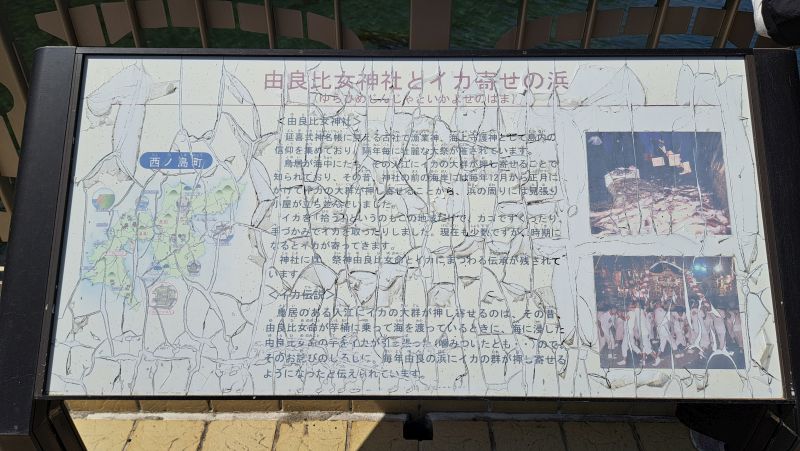 由良比女神社とイカ寄せの浜
(ゆらひめじんじゃといかよせのはま)
西ノ島町
<由良比女神社>
延喜式神名帳に見える古社で漁業神、海上守護神として島内の
信仰を集めており、隔年毎に壮麗な大祭が催されています。
鳥居が海中にたち、その入江にイカの大群が押し寄せることで
知られており、その昔、神社の前の海岸には毎年12月から正月に
かけてイカの大群が押し寄せることから、浜の周りには見張り
小屋が立ち並んでいました。
イカを「拾う」というのもこの地域だけで、カゴですくったり、
手づかみでイカを取ったりしました。現在も少数ですが、時期に
なるとイカが寄ってきます。
神社には、祭神由良比女命とイカにまつわる伝承が残されて
います。
<イカ伝説>
鳥居のある入江にイカの大群が押し寄せるのは、その昔、
由良比女命が芋桶に乗って海を渡っているときに、海に浸した
由良比女命の手をイカが引っ張った(噛みついたとも・・)ので
そのお詫びのしるしに、毎年由良の浜にイカの群が押し寄せる
ようになったと伝えられています。